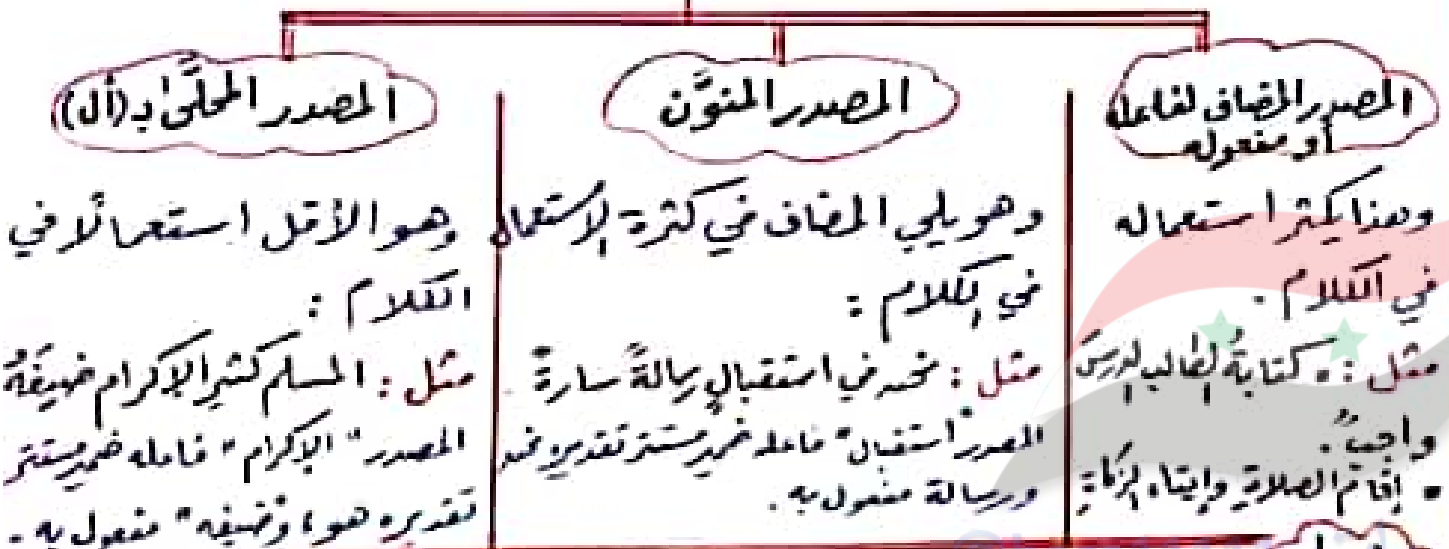 المصدر المضاف لفاعله
أو مفعوله
وهذا يكثر استعماله
في الكلام .
مثل : • كتابةُ الطالبِ الدرسَ
واجبٌ .
• إقام الصلاةِ وإيتاء الزكاةِ
المصدر المنوَّن
وهو يلي المضاف في كثرة الاستعمال
في الكلام :
مثل : نحن في استقبالٍ رسالةً سارةً
المصدر "استقبال" فاعله ضمير مستتر تقديره نحن
ورسالة مفعول به .
المصدر المحلَّى بـ (أل)
وهو الأقل استعمالًا في
الكلام :
مثل : المسلم كثير الإكرام ضيفَهُ
المصدر "الإكرام" فاعله ضمير مستتر
تقديره هو، و"ضيفه" مفعول به .